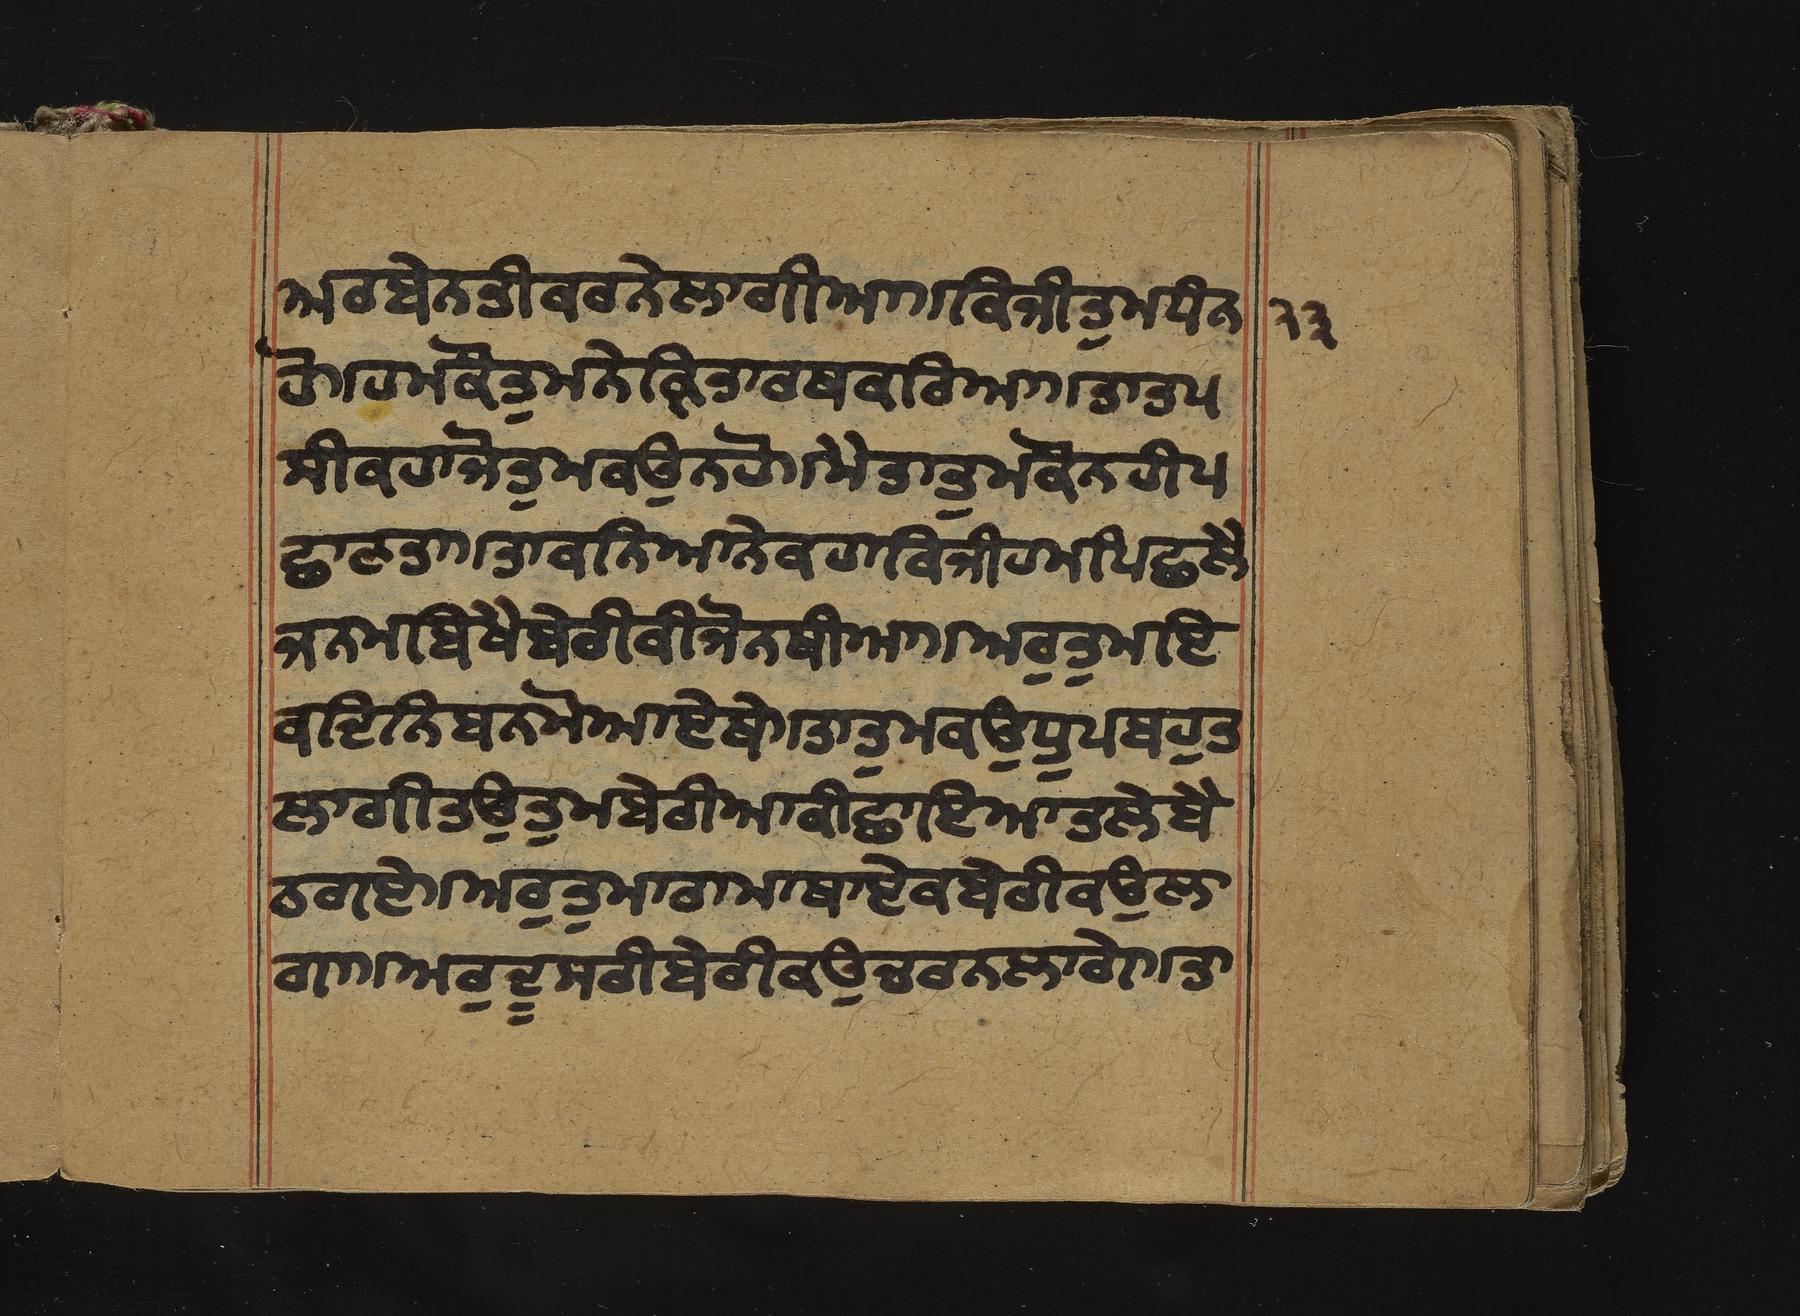 ਅਰਬੇਨਤੀਕਰਨੇਲਾਗੀਆ॥ਕਿਜੀਤੁਮਧੰਨ ੨੩
ਹੋ॥ਹਮਕੌਤੁਮਨੇਕ੍ਰਿਤਾਰਥਕਰਿਆ॥ਤਾਤਪ
ਸੀਕਹਾਜੋਤੁਮਕਉਨਹੋ॥ਮੈਤਾਤੁਮਕੌਨਹੀਪ
ਛਾਣਤਾ॥ਤਾਕਨਿਆਨੇਕਹਾਕਿਜੀਹਮਪਿਛਲੈ
ਜਨਮਬਿਖੈਬੇਰੀਕੀਜੋਨਥੀਆ॥ਅਰੁਤੁਮਇ
ਕਦਿਨਿਬਨਮੋਆਏਥੇ॥ਤਾਤੁਮਕਉਧੁਪਬਹੁਤ
ਲਾਗੀਤਉਤੁਮਬੇਰੀਆਕੀਛਾਇਆਤਲੇਬੈ
ਠਗਏ॥ਅਰੁਤੁਮਾਰਾਮਾਥਾਏਕਬੇਰੀਕਉਲਾ
ਗਾ॥ਅਰੁਦੂਸਰੀਬੇਰੀਕਉਚਰਨਲਾਗੇ॥ਤਾ